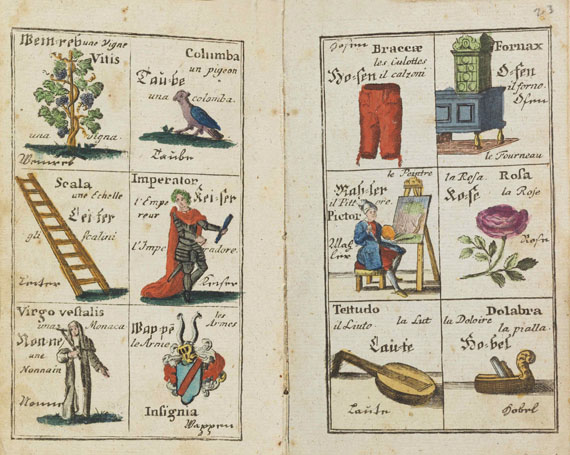 Wein-reb une Vigne
Vitis
una vigna.
Weinreb
Columba
un pigeon
Tau-be
una colomba.
Taube
Scala
une Echelle
Lei-ter
gli scalini
Leiter
Imperator
Kei-ser
l'Empe
reur
l'Impe radore.
Keiser
Virgo vestalis
una Monaca
Non-ne
une
Nonnain
Nonne
les
Armes
Wap-pē
le Armie
Insignia
Wappen
2.3
Hosen
Braccæ
les Culottes
Ho-sen il calzoni
Fornax
O-fen
il forno.
Ofen
le Fourneau
le Peintre
Mah-ler
il Pitt ore.
Pictor
Mah
ler
la Rosa.
Rosa
Ro-se
la Rose
Rose
Testudo
il Liuto
la Lut
Lau-te
Laute
Dolabra
la Doloire
la pialla.
Ho-bel
Hobel